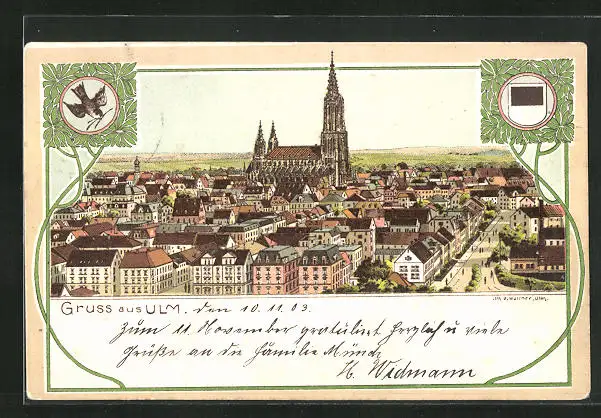 Gruss aus ULM. den 10.11.03.
Zum 11. November gratuliert herzlich u viele
Grüße an die Familie Münz
H. Widmann